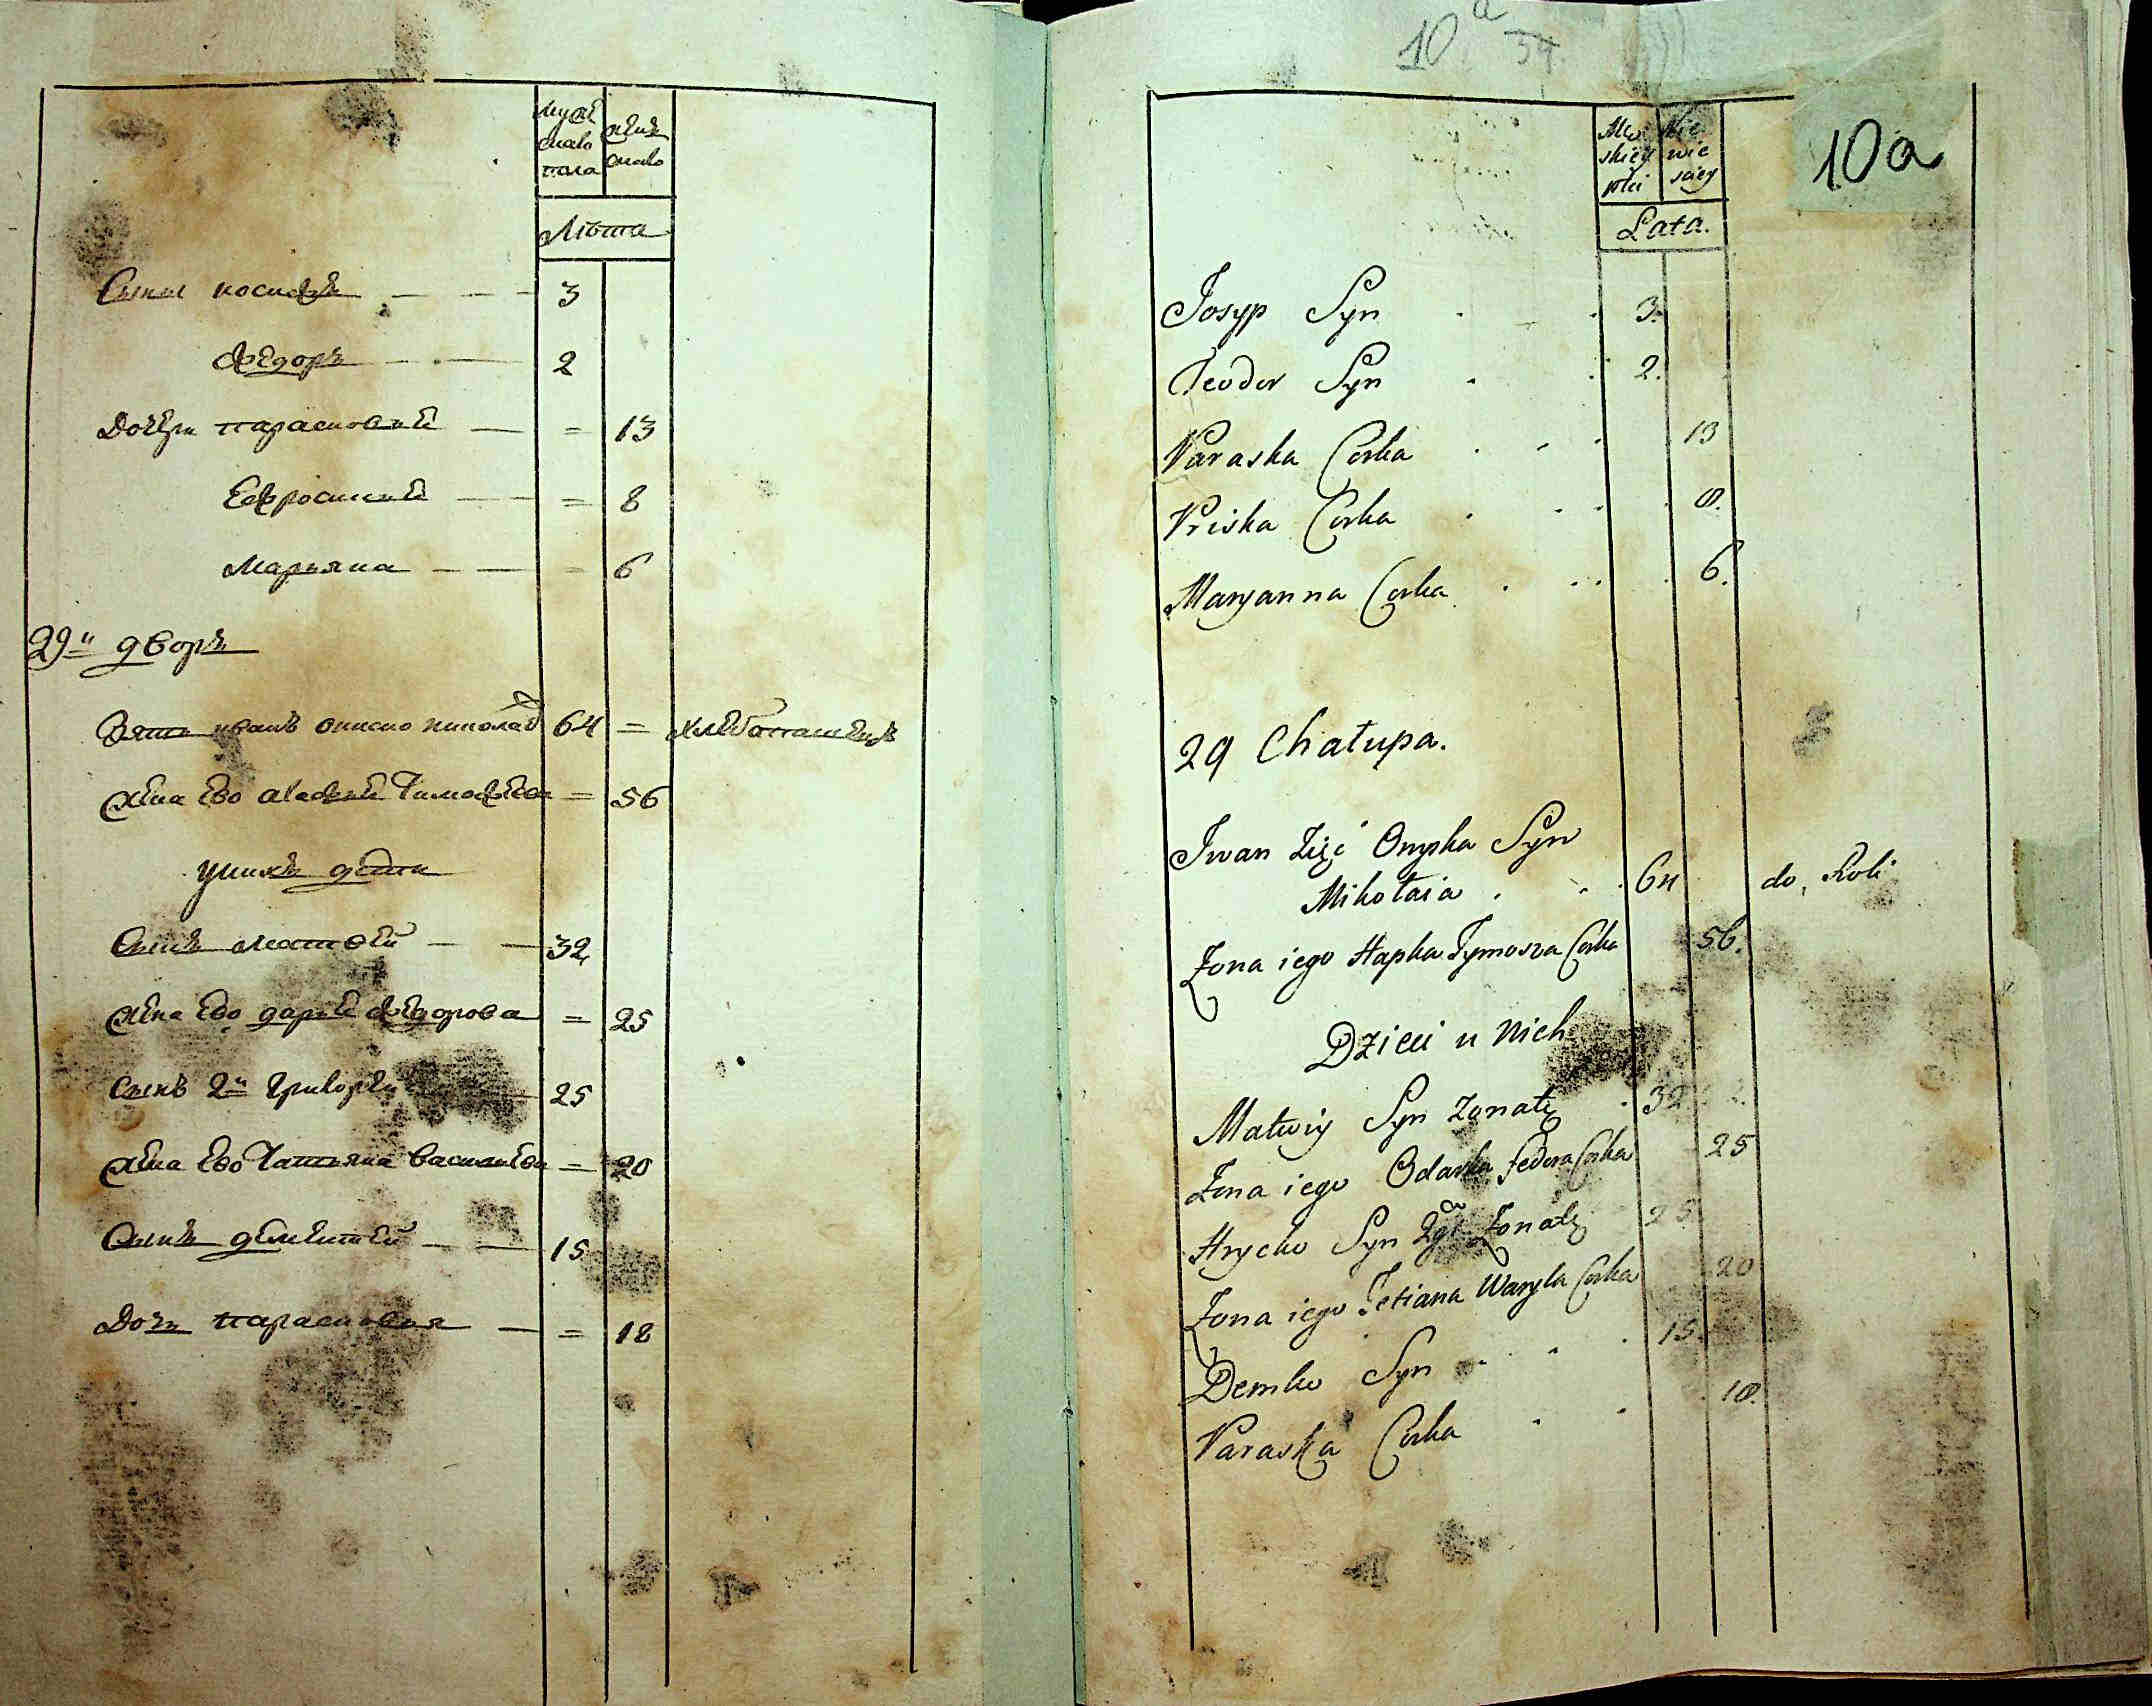 мужеска пола
женска
Лѣта
Сыны иосифъ 3
Федоръ 2
Дочери парасковиѣ = 13
Ефросиниѣ = 8
Марьяна = 6
29й дворъ
Зять иванъ ониско николаев 64 = хлебопашецъ
жена ево Тимофѣева = 56
у нихъ дети
Сынъ матвѣй 32
жена ево дарьѣ федорова = 25
сынъ 2й григорѣй 25
жена ево Татьяна василиева = 20
Сынъ дементѣй 15
Дочь парасковия = 18
10 a
59
10a
Męskiey płci
Niewieściey
Lata.
Josyp Syn 3.
Teodor Syn 2.
Paraska Corka 13
Priska Corka 8.
Maryanna Corka 6.
29 Chałupa.
Iwan Zięć Onyska Syn
Mikołaia 64 do Roli
Zona iego Hapka Tymosza Corka 56.
Dzieci u nich
Matwiy Syn zonaty 32
Zona iego Odarka Fedora Corka 25
Hrycko Syn 2gi Zonaty 25
Zona iego Tetiana Wasyla Corka 20
Demko Syn 15.
Paraska Corka 18.